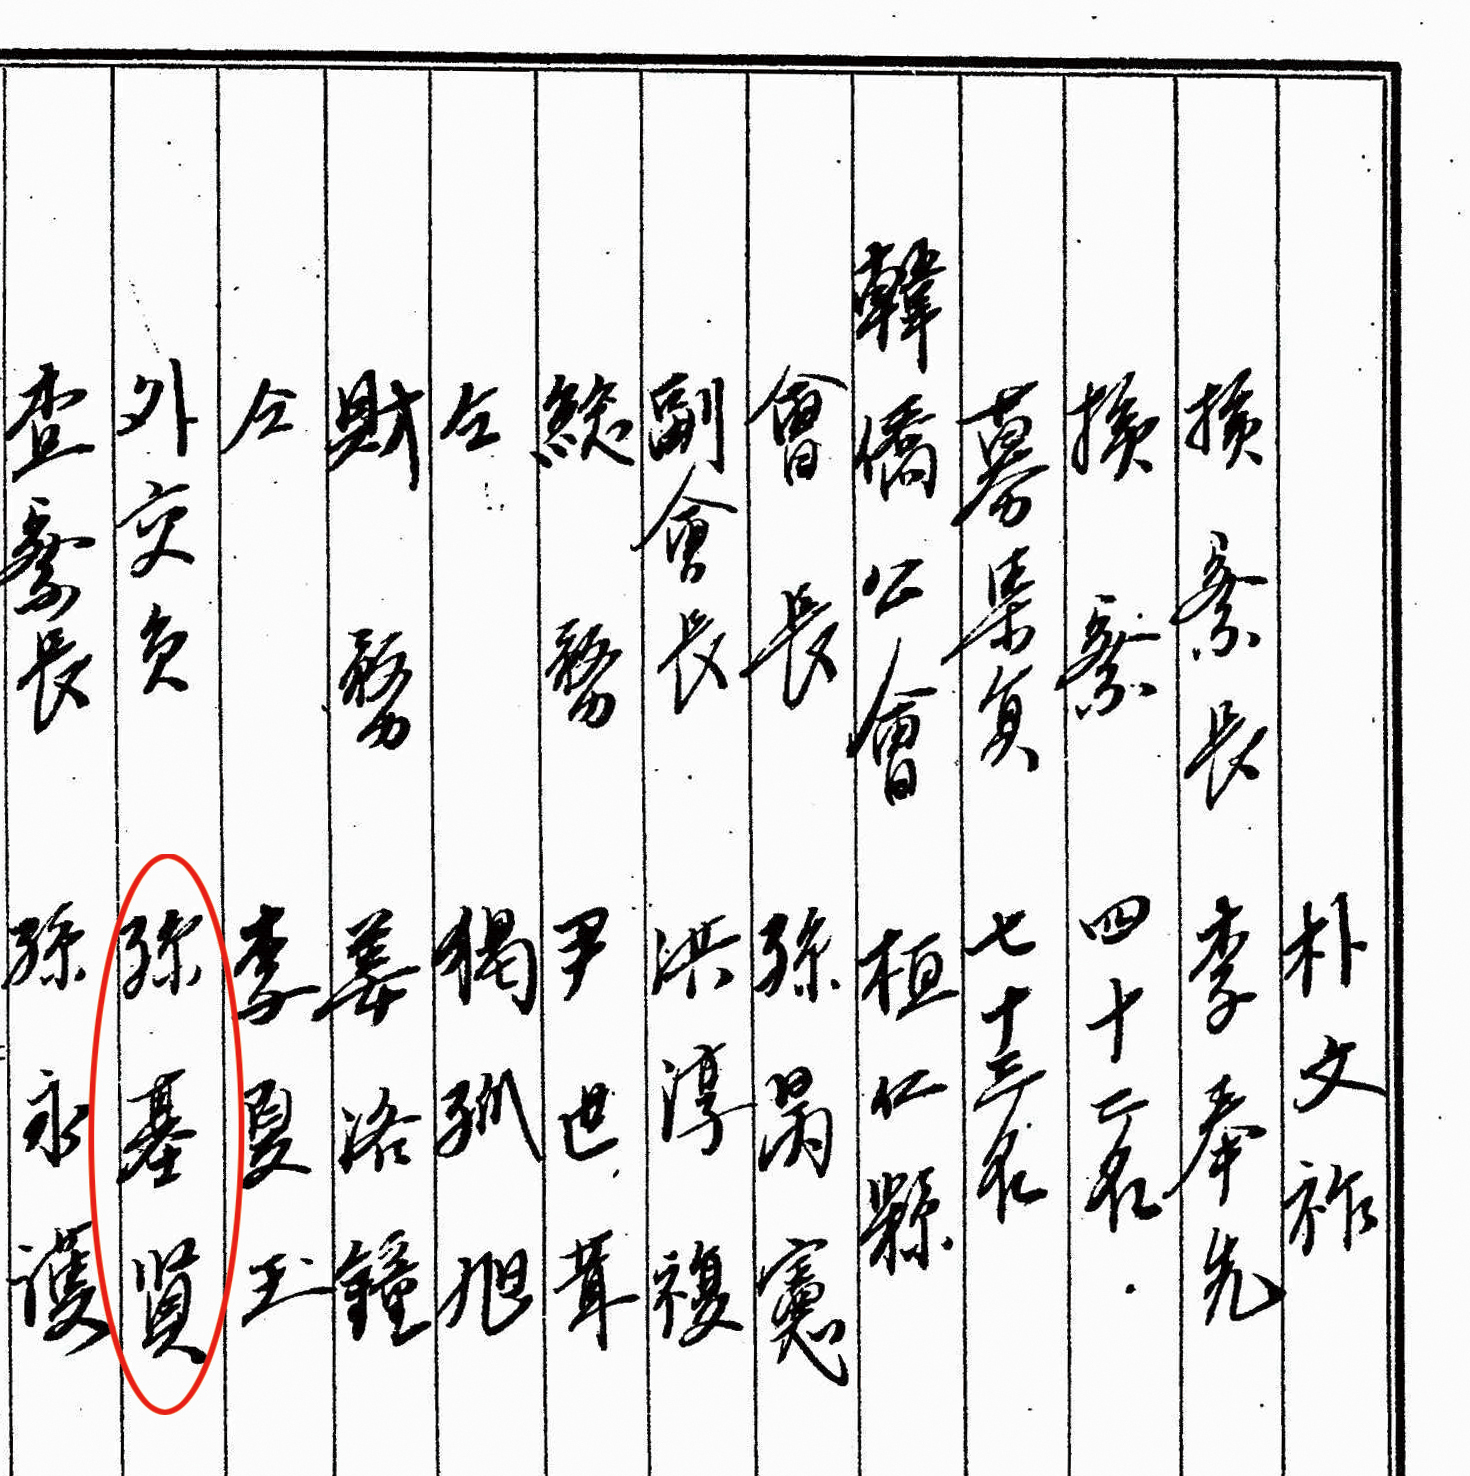 朴文祚
探索長 李奉先
探索 四十二名
募集員 七十三名
韓僑公會 桓仁縣
會長 孫昺憲
副會長 洪淳複
總務 尹世茸
仝 獨孤旭
財務 姜洛鐘
仝 李夏玉
外交員 孫基賢
查察長 孫永護